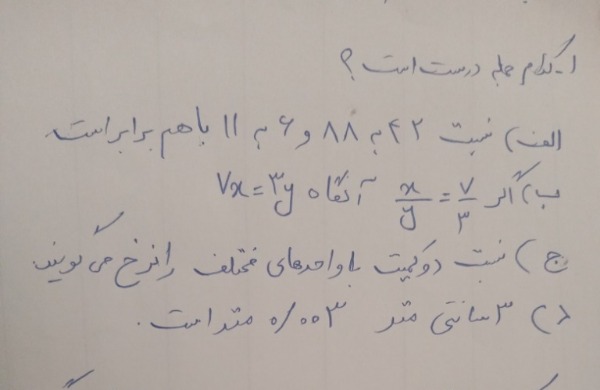 ۱- کدام جمله درست است؟
الف) نسبت ۴۲ به ۸۸ و ۶ به ۱۱ با هم برابر است.
ب) اگر x/y = ۷/۳ آنگاه ۷x = ۳y
ج) نسبت دو کمیت با واحدهای مختلف را نرخ می گویند.
د) ۳ سانتی متر ۰/۰۰۳ متر است.